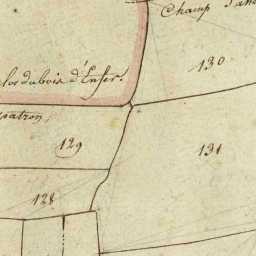 Champ
130
clos du bois d'Enfer.
129
131
128